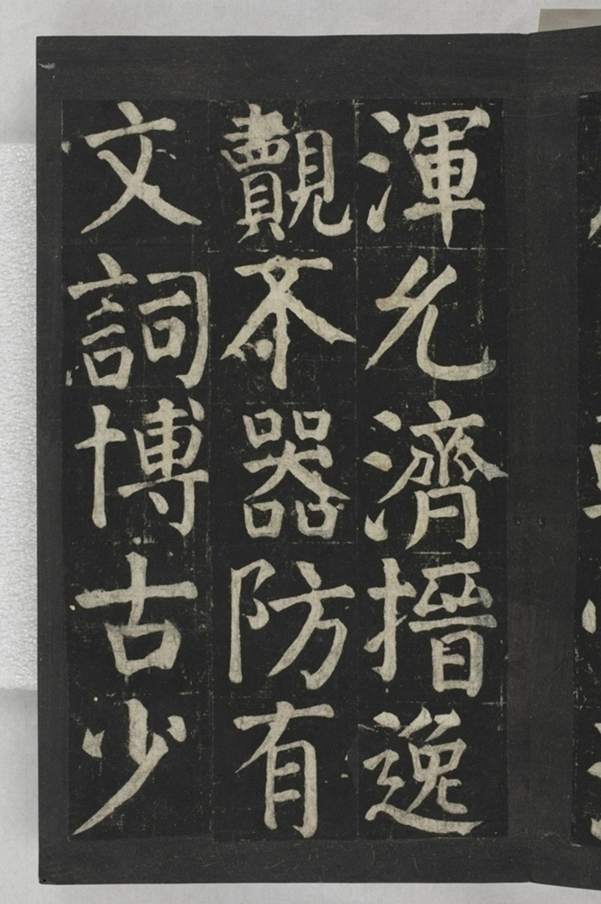 渾允濟搢逸
覿不器防有
文詞博古少